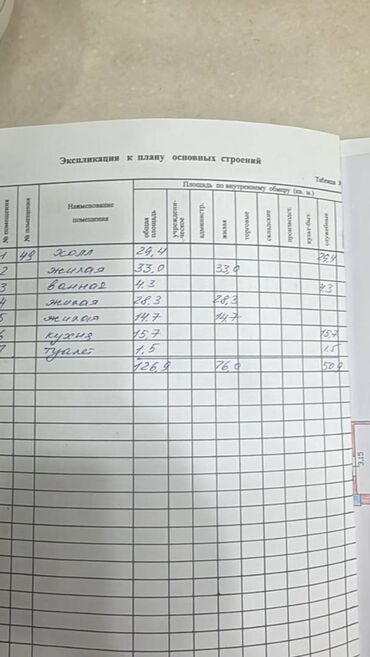 Экспликация к плану основных строений
Таблица
Площадь по внутреннему обмеру (кв. м.)
№ помещения
№ помещения
Наименование помещения
общая площадь
учрежденческое
административ.
жилая
торговые
складские
производст.
культ-быт.
служебные
1 49 холл 29,4 29,4
2 жилая 33,0 33,0
3 ванная 4.3 4.3
4 жилая 28,3 28,3
5 жилая 14.7 14,7
6 кухня 15,7 15,7
7 туалет 1,5 1.5
126,9 76,0 50,9
3,15